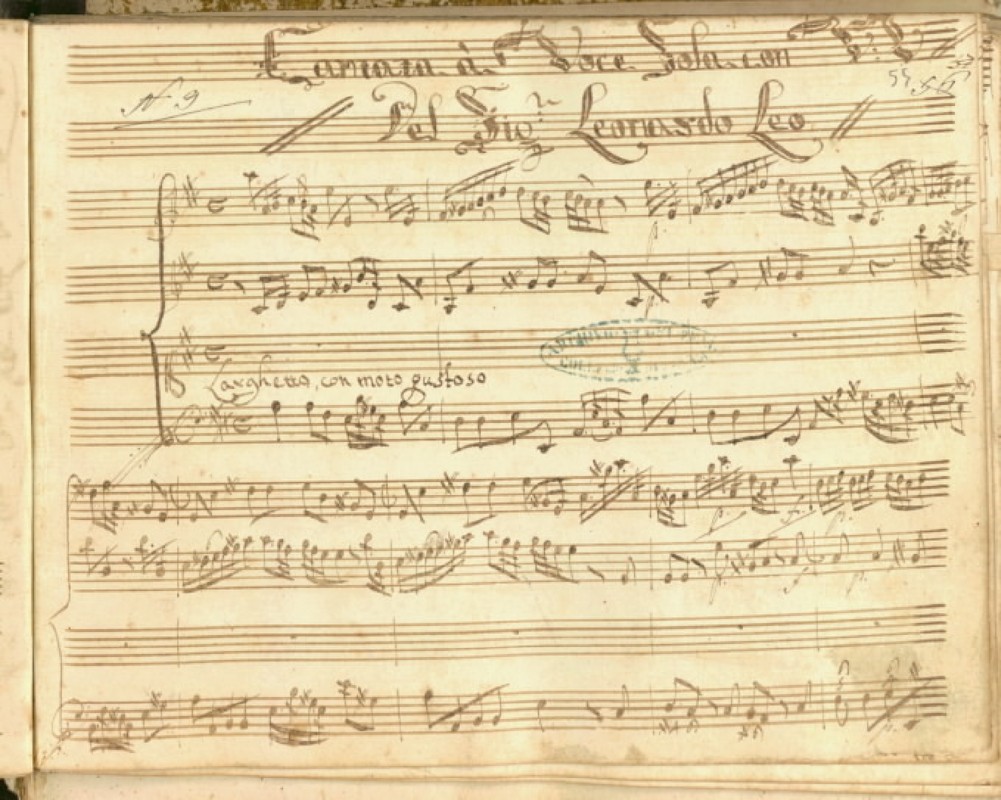 Cantata à Voce Sola con V.V.
N. 9
Del Sig.r Leonardo Leo
Larghetto, con moto gustoso